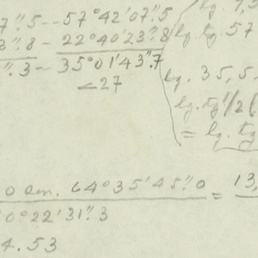 7".5 -- 57°42'07".5
3".8 - 22°40'23".8
".3 - 35°01'43".7
<27
lg.
lg. lg. 57
lg. 35,5
lg. tg 1/2 (
= lg. tg
0 cm. 64°35'45".0 = 13,
0°22'31".3
4.53